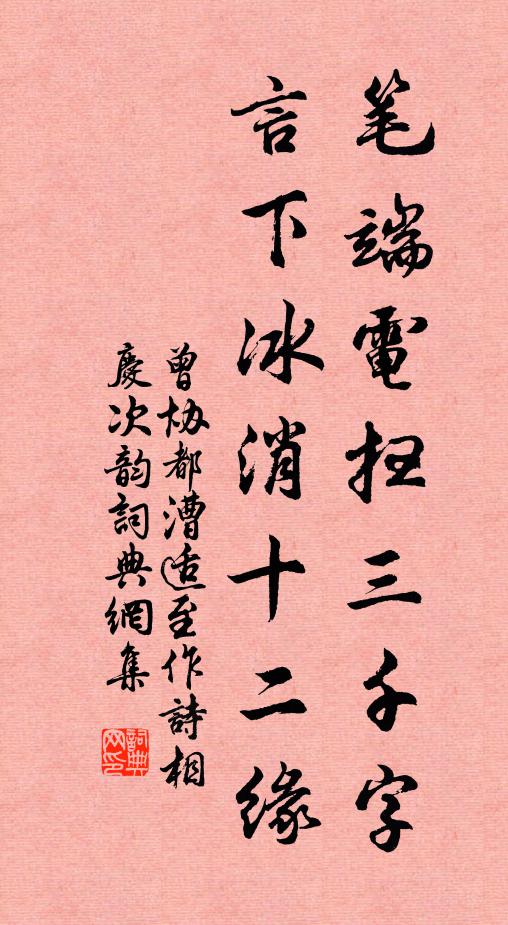 笔端電扫三千字
言下冰消十二缘
曾协都漕适至作詩相
慶次韵詞典網集
詞典
网印